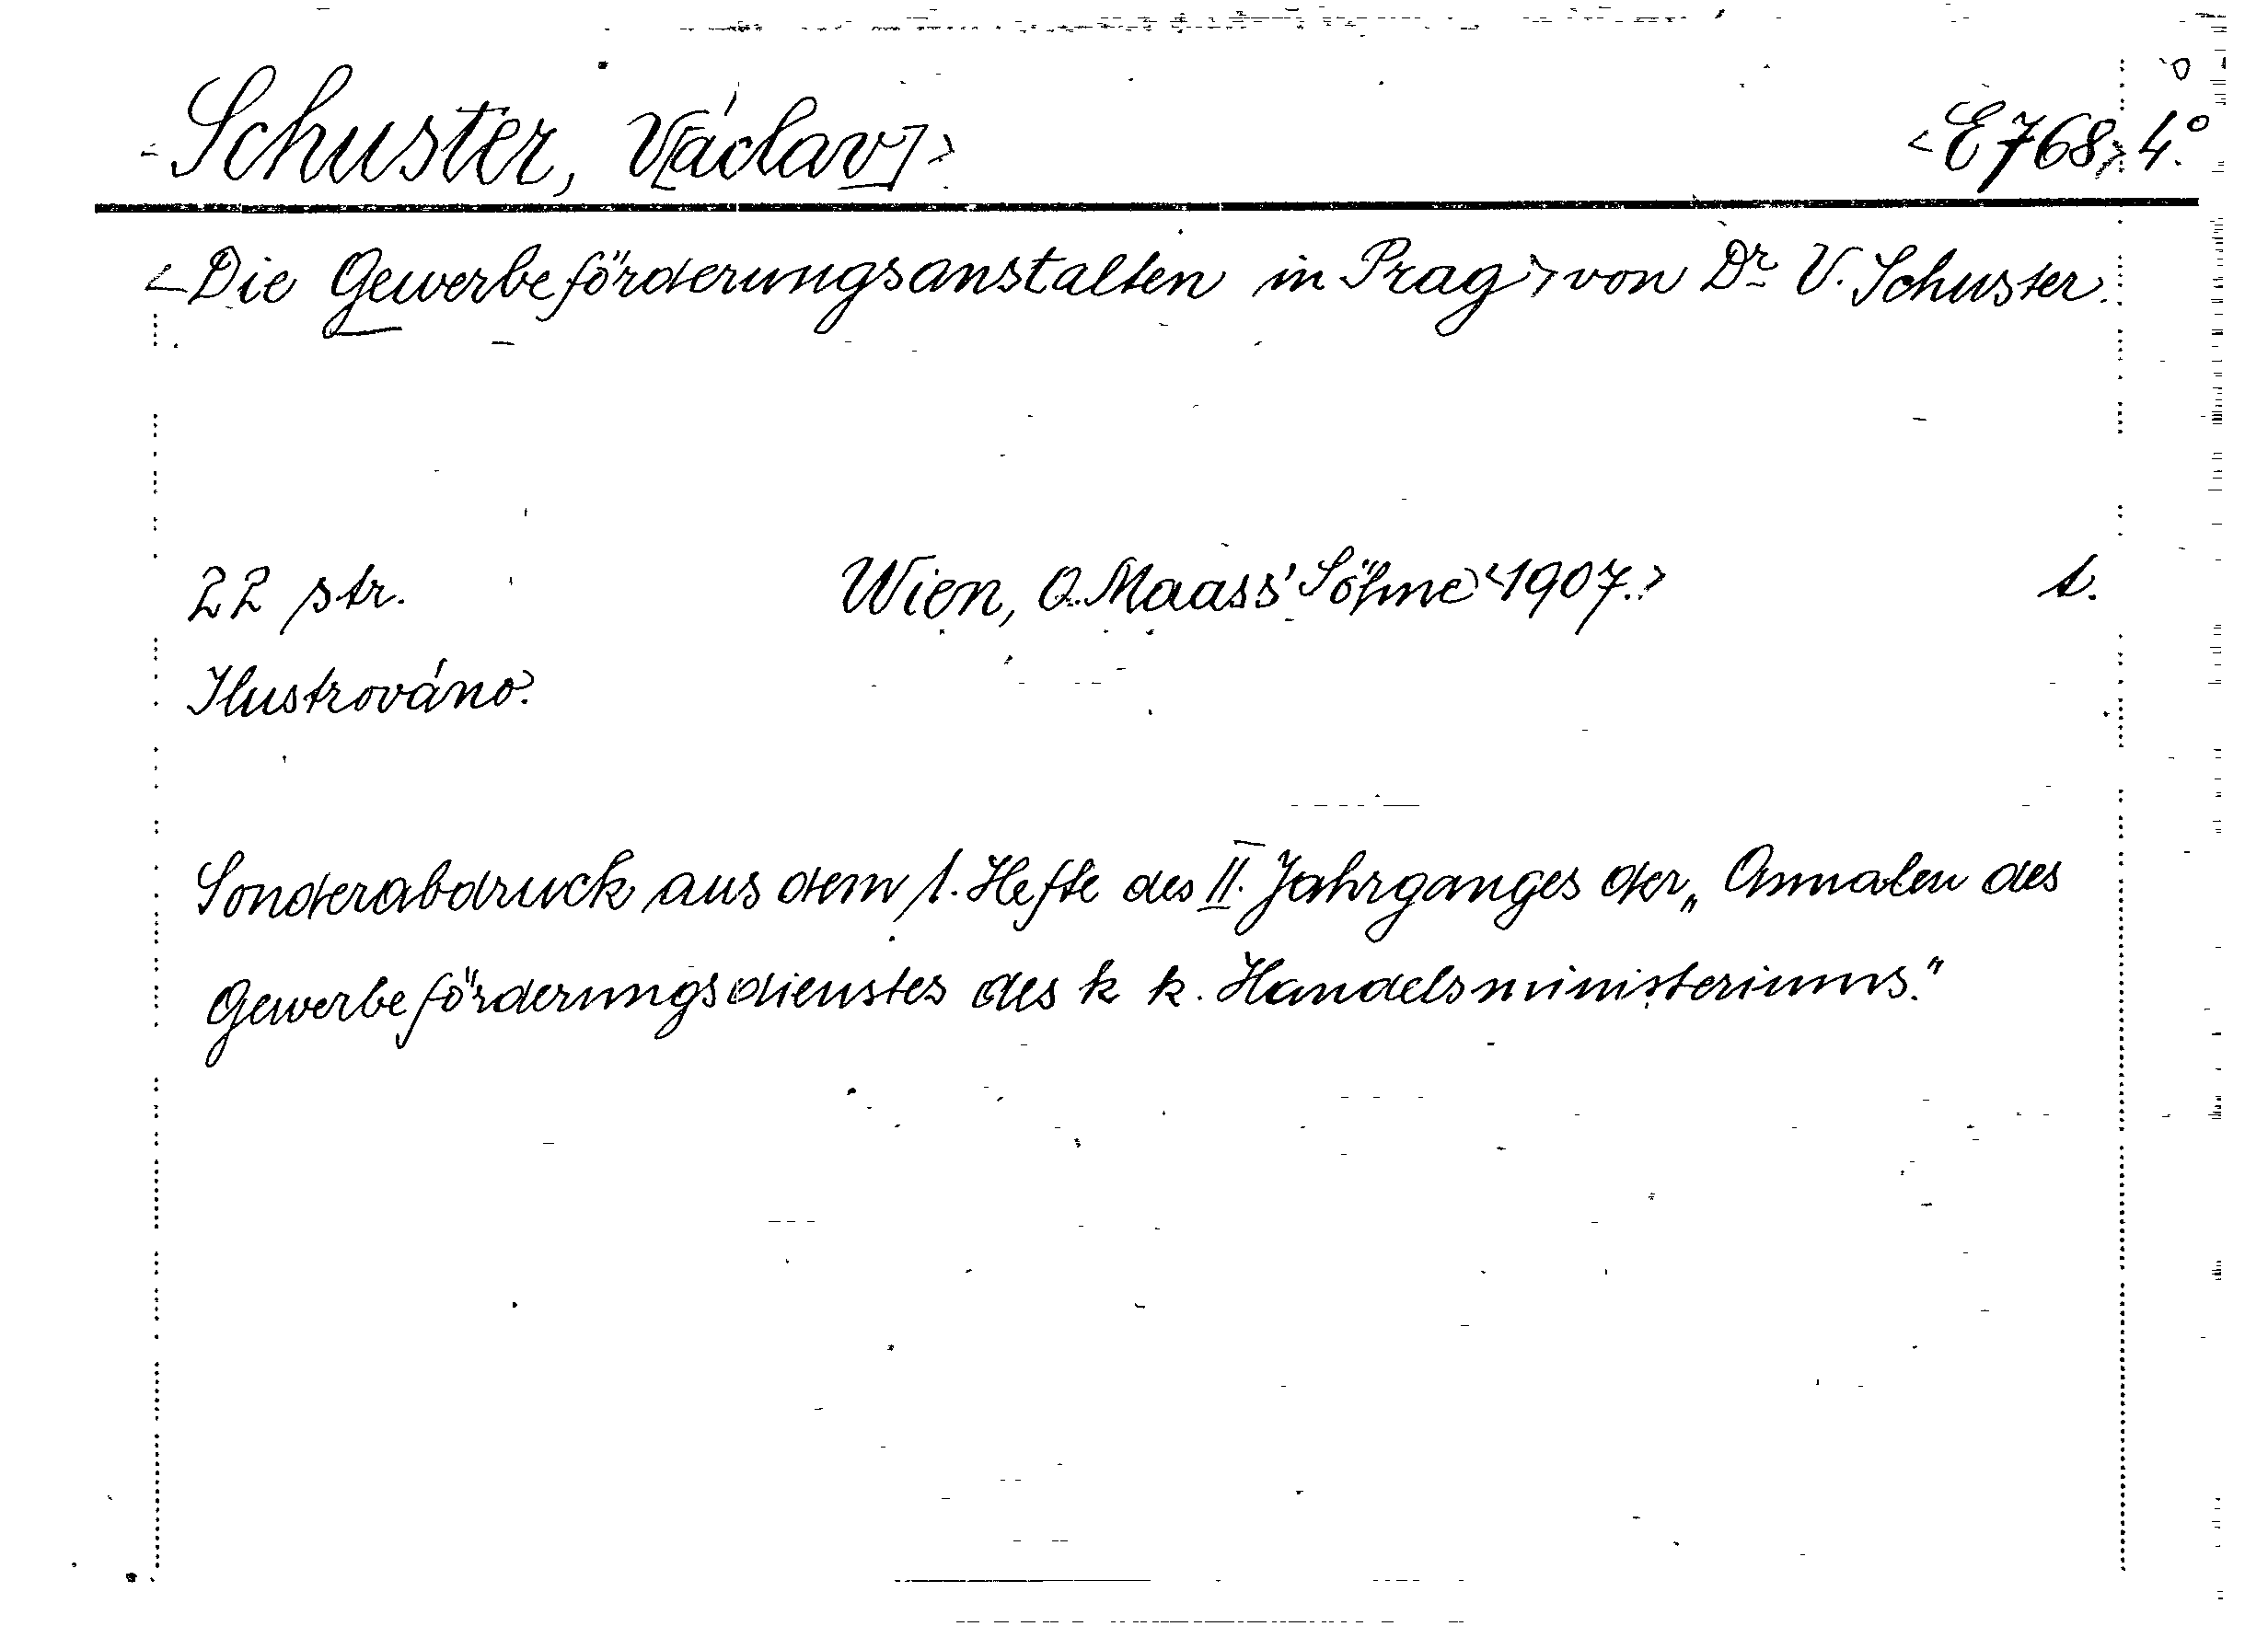 <Schuster, V[áclav]> <E768> 4.°
<Die Gewerbeförderungsanstalten in Prag> von Dr V. Schuster.
22 str. Wien, O. Maass' Söhne <1907.> t.
Ilustrováno.
Sonderabdruck aus dem 1. Hefte des II. Jahrganges der „Annalen des
Gewerbeförderungsdienstes des k k. Handelsministeriums."